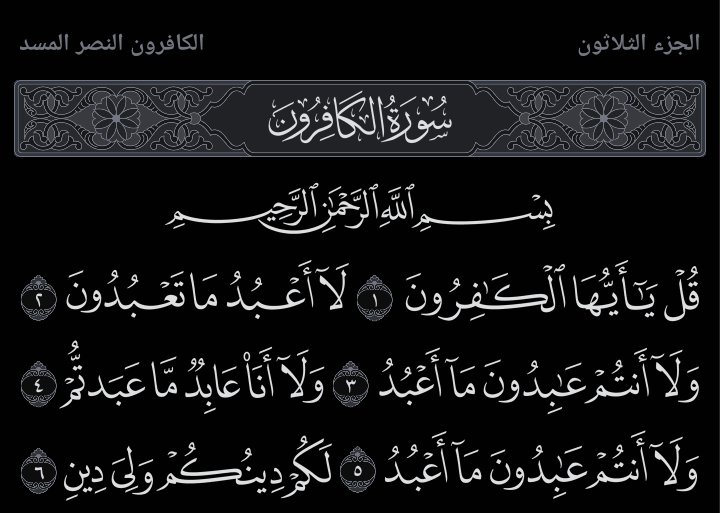 الجزء الثلاثون
الكافرون النصر المسد
سُورَةُ الكَافِرُونَ
بِسْمِ ٱللَّهِ ٱلرَّحْمَٰنِ ٱلرَّحِيمِ
قُلْ يَٰٓأَيُّهَا ٱلْكَٰفِرُونَ ١ لَآ أَعْبُدُ مَا تَعْبُدُونَ ٢
وَلَآ أَنتُمْ عَٰبِدُونَ مَآ أَعْبُدُ ٣ وَلَآ أَنَا۠ عَابِدٌ مَّا عَبَدتُّمْ ٤
وَلَآ أَنتُمْ عَٰبِدُونَ مَآ أَعْبُدُ ٥ لَكُمْ دِينُكُمْ وَلِىَ دِينِ ٦